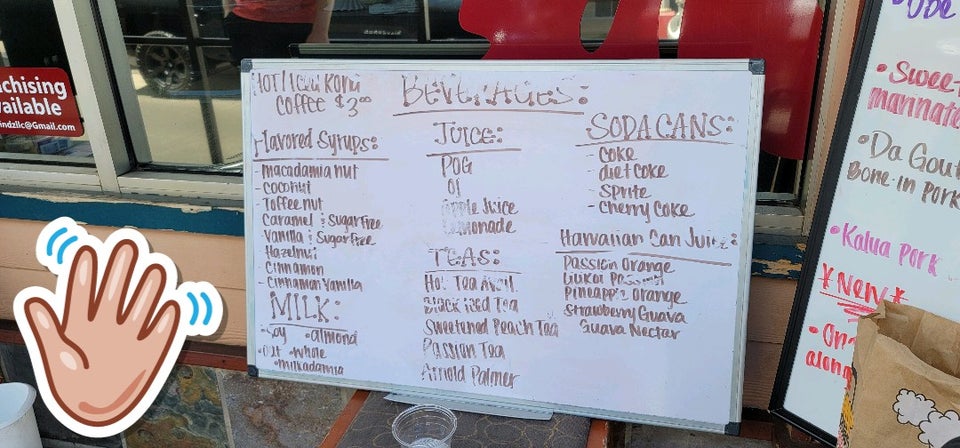 chising
vailable
indzllc@Gmail.com
Hot/Iced Kona
Coffee $3.00
Beverages:
Flavored Syrups:
-macadamia nut
-coconut
-Toffee nut
Caramel & Sugar Free
Vanilla & Sugar Free
Hazelnut
-Cinnamon
-Cinnamon Vanilla
MILK:
•Soy •almond
•Oat •whole
•milkadamia
Juice:
POG
OJ
Apple Juice
Lemonade
TEAS:
Hot Tea
Black Iced Tea
Sweetened Peach Tea
Passion Tea
Arnold Palmer
SODA CANS:
- Coke
- diet Coke
- Sprite
- Cherry Coke
Hawaiian Can Juice:
Passion Orange
Lilikoi Passion
Pineapple Orange
Strawberry Guava
Guava Nectar
•Ube
•Sweet
mannate
•Da Gout
Bone-in Pork
•Kalua Pork
*New*
along